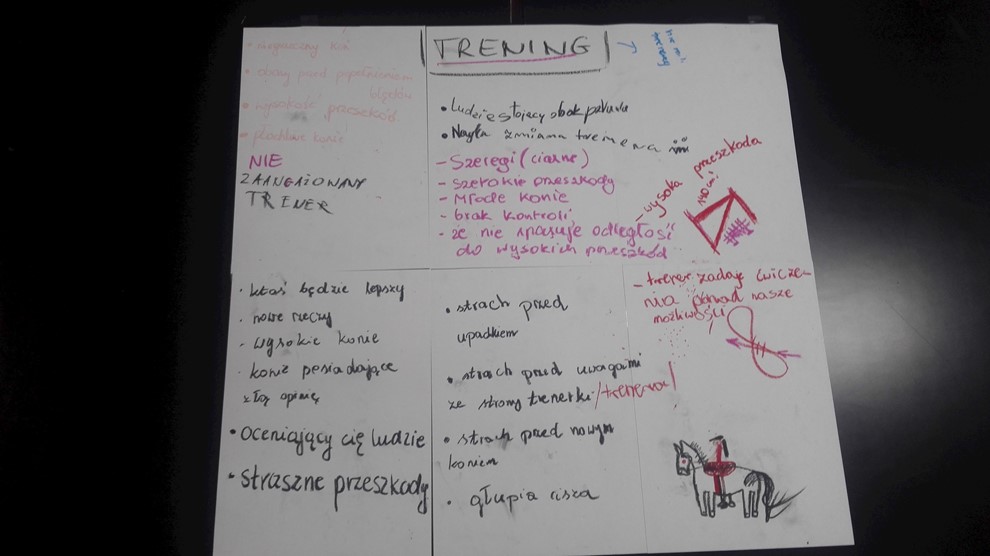 TRENING
• obawy przed popełnieniem
błędów
• wysokość przeszkód
• płochliwe konie
NIE
ZAANGAŻOWANY
TRENER
• Ludzie stojący obok parkuru
• Nagła zmiana trenera
- Szeregi (ciasne)
- szerokie przeszkody
- Młode konie
- brak kontroli
- że nie spasuje odległość
do wysokich przeszkód
- wysoka przeszkoda
140 cm!
• ktoś będzie lepszy
• nowe rzeczy
- wysokie konie
• konie posiadające
złą opinię
• oceniający cię ludzie
• straszne przeszkody
• strach przed
upadkiem
• strach przed uwagami
ze strony trenerki/trenera/
• strach przed nowym
koniem
• głupia cisza
- trener zadaje ćwicze-
nia ponad nasze
możliwości